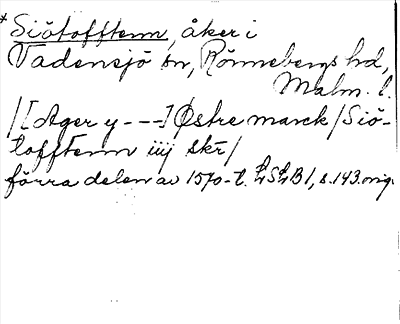 *Siötofftenn, åker i
Vadensjö sn, Rönnebergs hd,
Malm. l.
/[Ager y ---] Østre marck/Siö-
tofftenn iiij skr/
förra delen av 1570-t. LSLB1, s.143.orig.